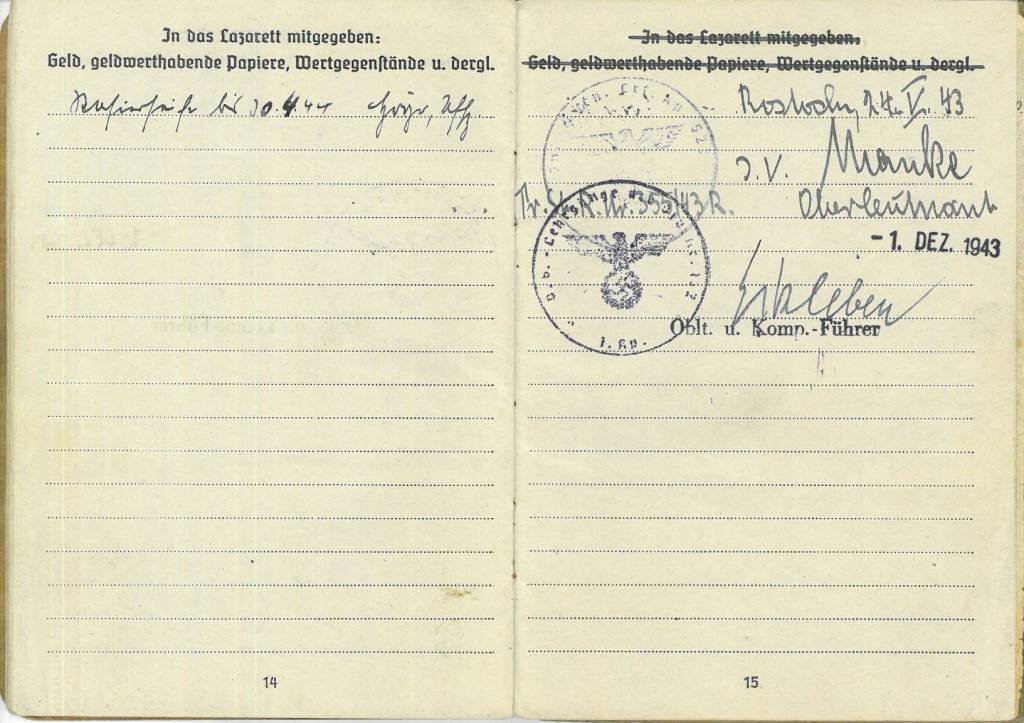 In das Lazarett mitgegeben:
Geld, geldwerthabende Papiere, Wertgegenstände u. dergl.
Rasierseife bis 30.4.44
14
In das Lazarett mitgegeben:
Geld, geldwerthabende Papiere, Wertgegenstände u. dergl.
Rostock, 24. V. 43
J.V. Manke
Tr. St. R. Nr. 355/43 R. Oberleutnant
-1. DEZ. 1943
Oblt. u. Komp.-Führer
1. Kp.
15